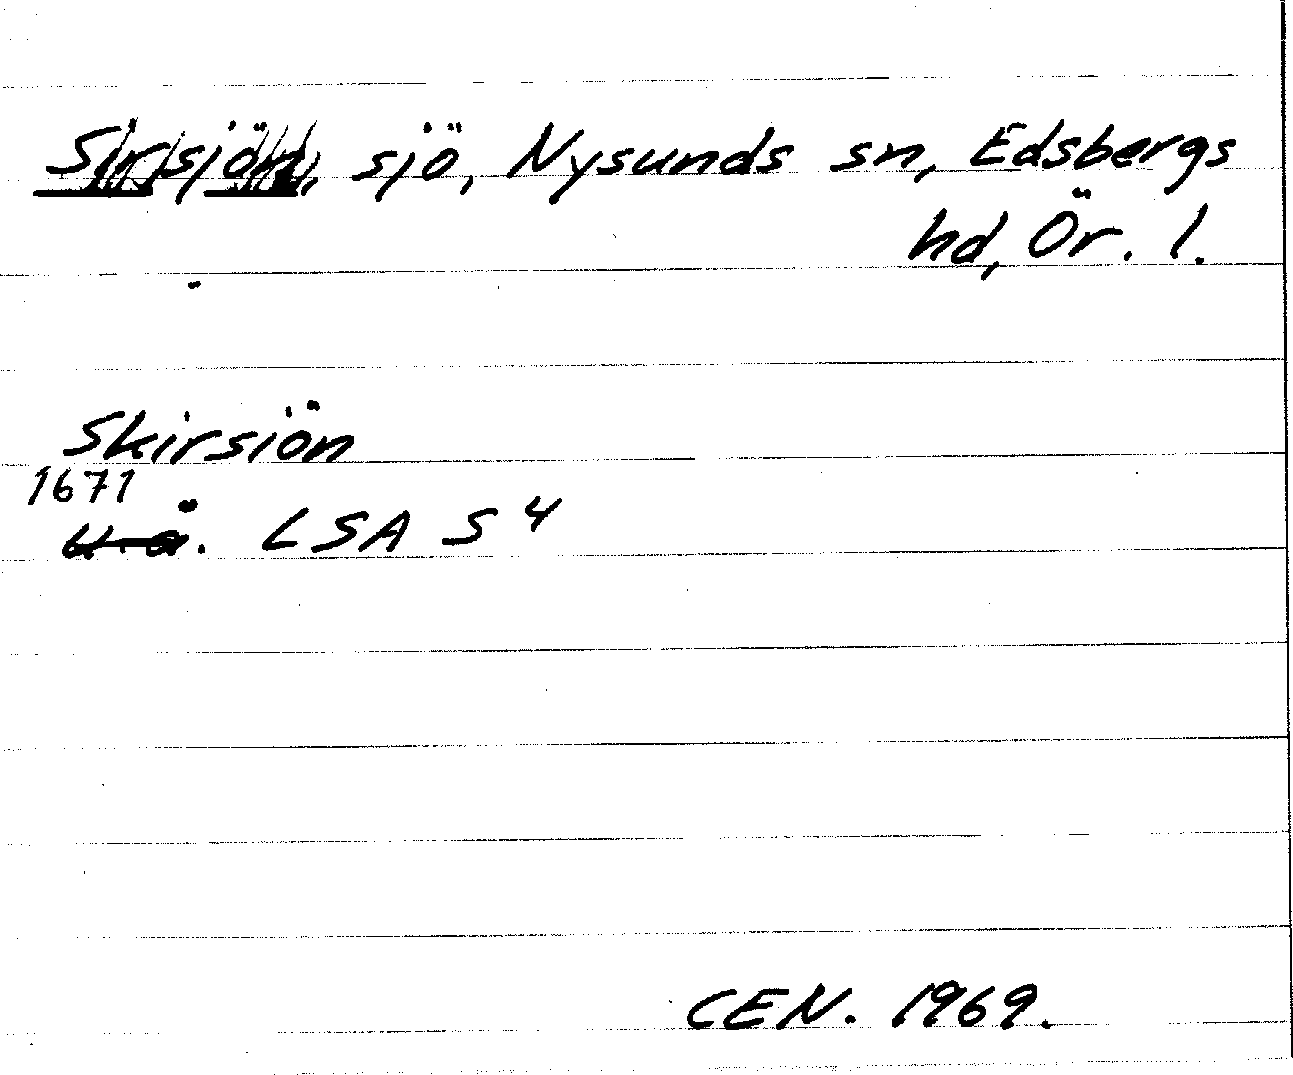 Sirsjön, sjö, Nysunds sn, Edsbergs
hd, Ör. l.
Skirsiön
1671
u.å. LSA S 4
CEN. 1969.